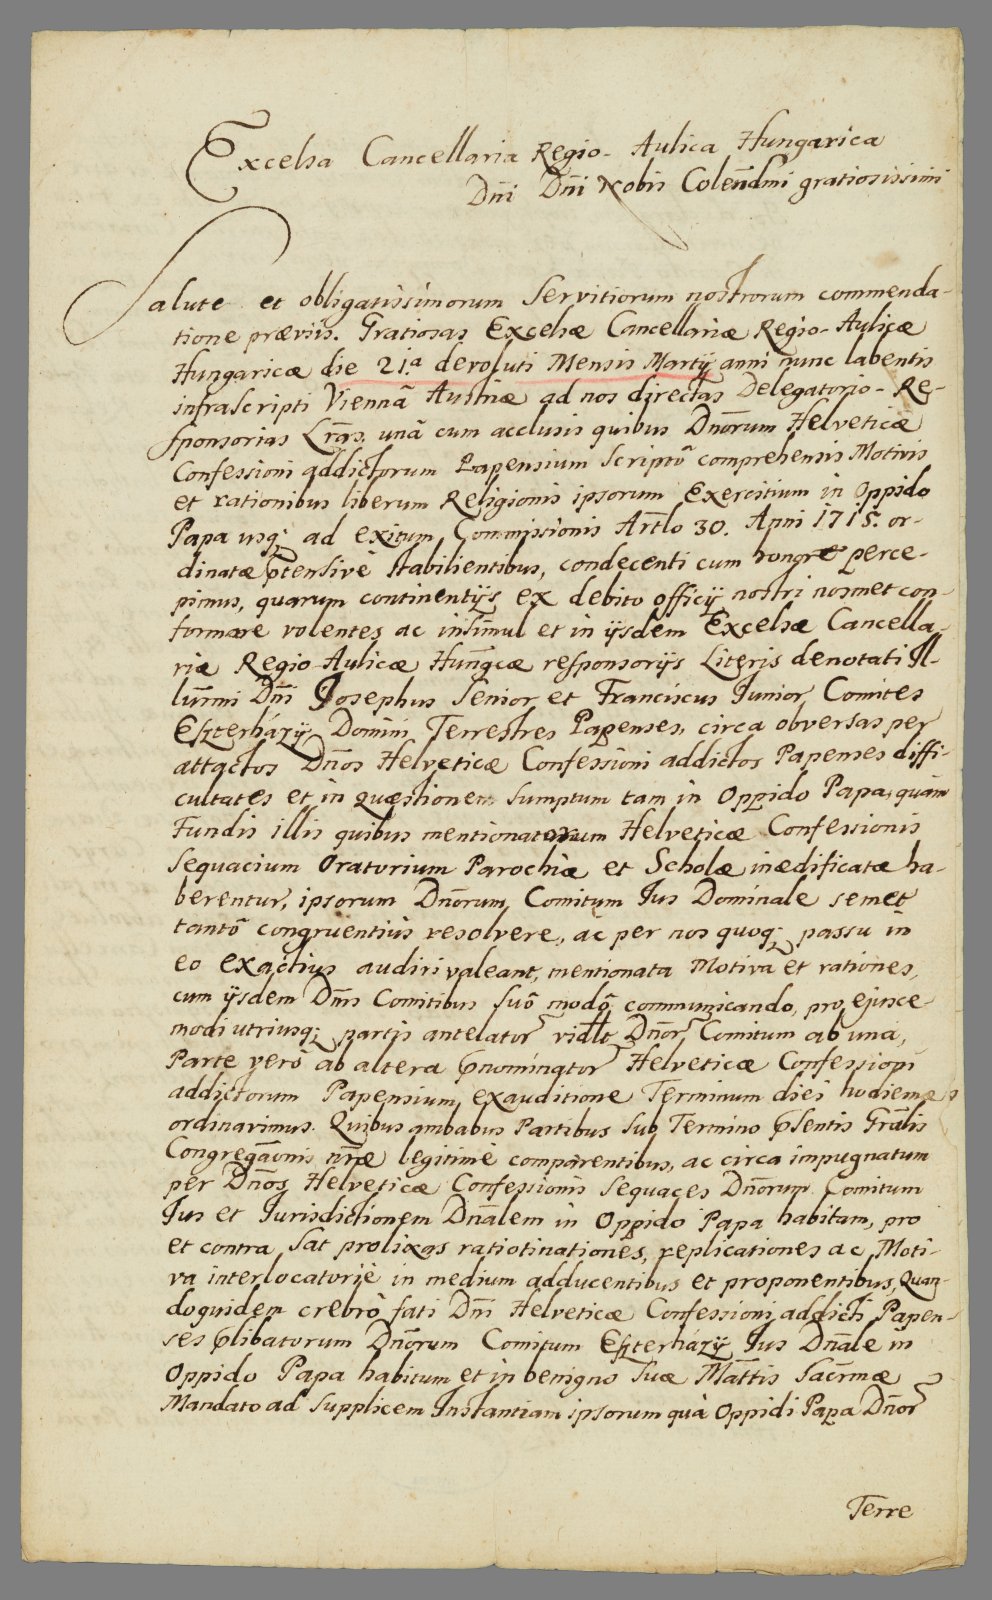 Excelsa Cancellaria Regio-Aulica Hungarica
Dn̄i Dn̄i Nobis Colen̄dmi gratiosissimi
Salute et obligatissimorum Servitiorum nostrorum commenda-
tione præviis. Gratiosas Excelsæ Cancellariæ Regio-Aulicæ
Hungaricæ die 21.a devoluti Mensis Martij anni nunc labentis
infrascripti Viennâ Austriæ ad nos directas Delegatorio-Re-
sponsorias Lr̄as, unâ cum acclusis quibus Dn̄orum Helveticæ
Confessioni addictorum Papensium Scriptô comprehensis Motivis
et rationibus liberum Religionis ipsorum Exercitium in Oppido
Papa usq; ad exitum Commissionis Art̄lo 30. Anni 1715. or-
dinatæ p̄tensivè stabilientibus, condecenti cum honore perce-
pimus, quarum continentijs ex debito officij nostri nosmet con-
formare volentes ac insimul et in ijsdem Excelsæ Cancella-
riæ Regio-Aulicæ Hun̄gcæ responsorijs Literis denotati Il-
lun̄mi Dn̄i Josephus Senior et Franciscus Junior Comites
Eszterházÿ Domini Terrestres Papenses, circa obversas per
attactos Dn̄os Helveticæ Confessioni addictos Papenses diffi-
cultates et in quæstionem sumptum tam in Oppido Papa, quàm
Fundis illis quibus mentionatorum Helveticæ Confessionis
Sequacium Oratorium Parochiæ et Scholæ inædificatæ ha-
berentur, ipsorum Dn̄orum Comitum Jus Dominale semet
tantô congruentius resolvere, ac per nos quoq; passu in
eo exactius audiri valeant, mentionata Motiva et rationes,
cum ijsdem Dn̄is Comitibus suô modô communicando, pro ejusce-
modi utriusq; partis antelator vid̄lt Dn̄or Comitum ab una,
Parte verò ab altera p̄nominator Helveticæ Confessioni
addictorum Papensium exauditione Terminum diei hodiernæ
ordinavimus. Quibus ambabus Partibus sub Termino p̄sentis Gr̄alis
Congregāōnis nr̄æ legitimè comparentibus, ac circa impugnatum
per Dn̄os Helveticæ Confessionis Sequaces Dn̄orum Comitum
Jus et Jurisdictionem Dn̄alem in Oppido Papa habitam, pro
et contra sat prolixas ratiotinationes, replicationes ac Moti-
va interlocutoriè in medium adducentibus et proponentibus, Quan-
doquidem crebrò fati Dn̄i Helveticæ Confessioni addicti Papen-
ses p̄libatorum Dn̄orum Comitum Eszterházÿ Jus Dn̄ale in
Oppido Papa habitum et in benigno Suæ Mat̄tis Sacr̄mæ
Mandato ad supplicem Instantiam ipsorum quà Oppidi Papa Dn̄or
Terre